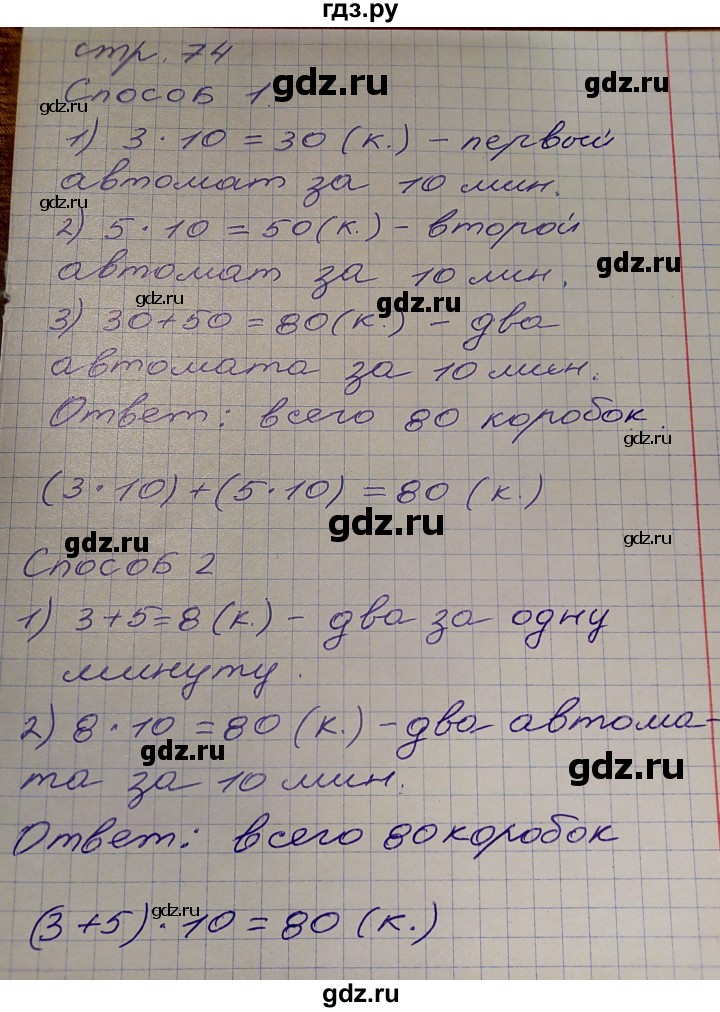 гдз.ру
стр. 74
gdz.ru
gdz.ru
Способ 1.
gdz.ru
1) 3 · 10 = 30 (к.) – первый
gdz.ru
автомат за 10 мин.
gdz.ru
2) 5 · 10 = 50 (к.) – второй
gdz.ru
автомат за 10 мин.
gdz.ru
gdz.ru
3) 30 + 50 = 80 (к.) – два
автомата за 10 мин.
Ответ: всего 80 коробок.
gdz.ru
(3 · 10) + (5 · 10) = 80 (к.)
gdz.ru
gdz.ru
gdz.ru
Способ 2
1) 3 + 5 = 8 (к.) – два за одну
минуту.
2) 8 · 10 = 80 (к.) – два автома-
gdz.ru
gdz.ru
та за 10 мин.
Ответ: всего 80 коробок
gdz.ru
(3 + 5) · 10 = 80 (к.)
gdz.ru